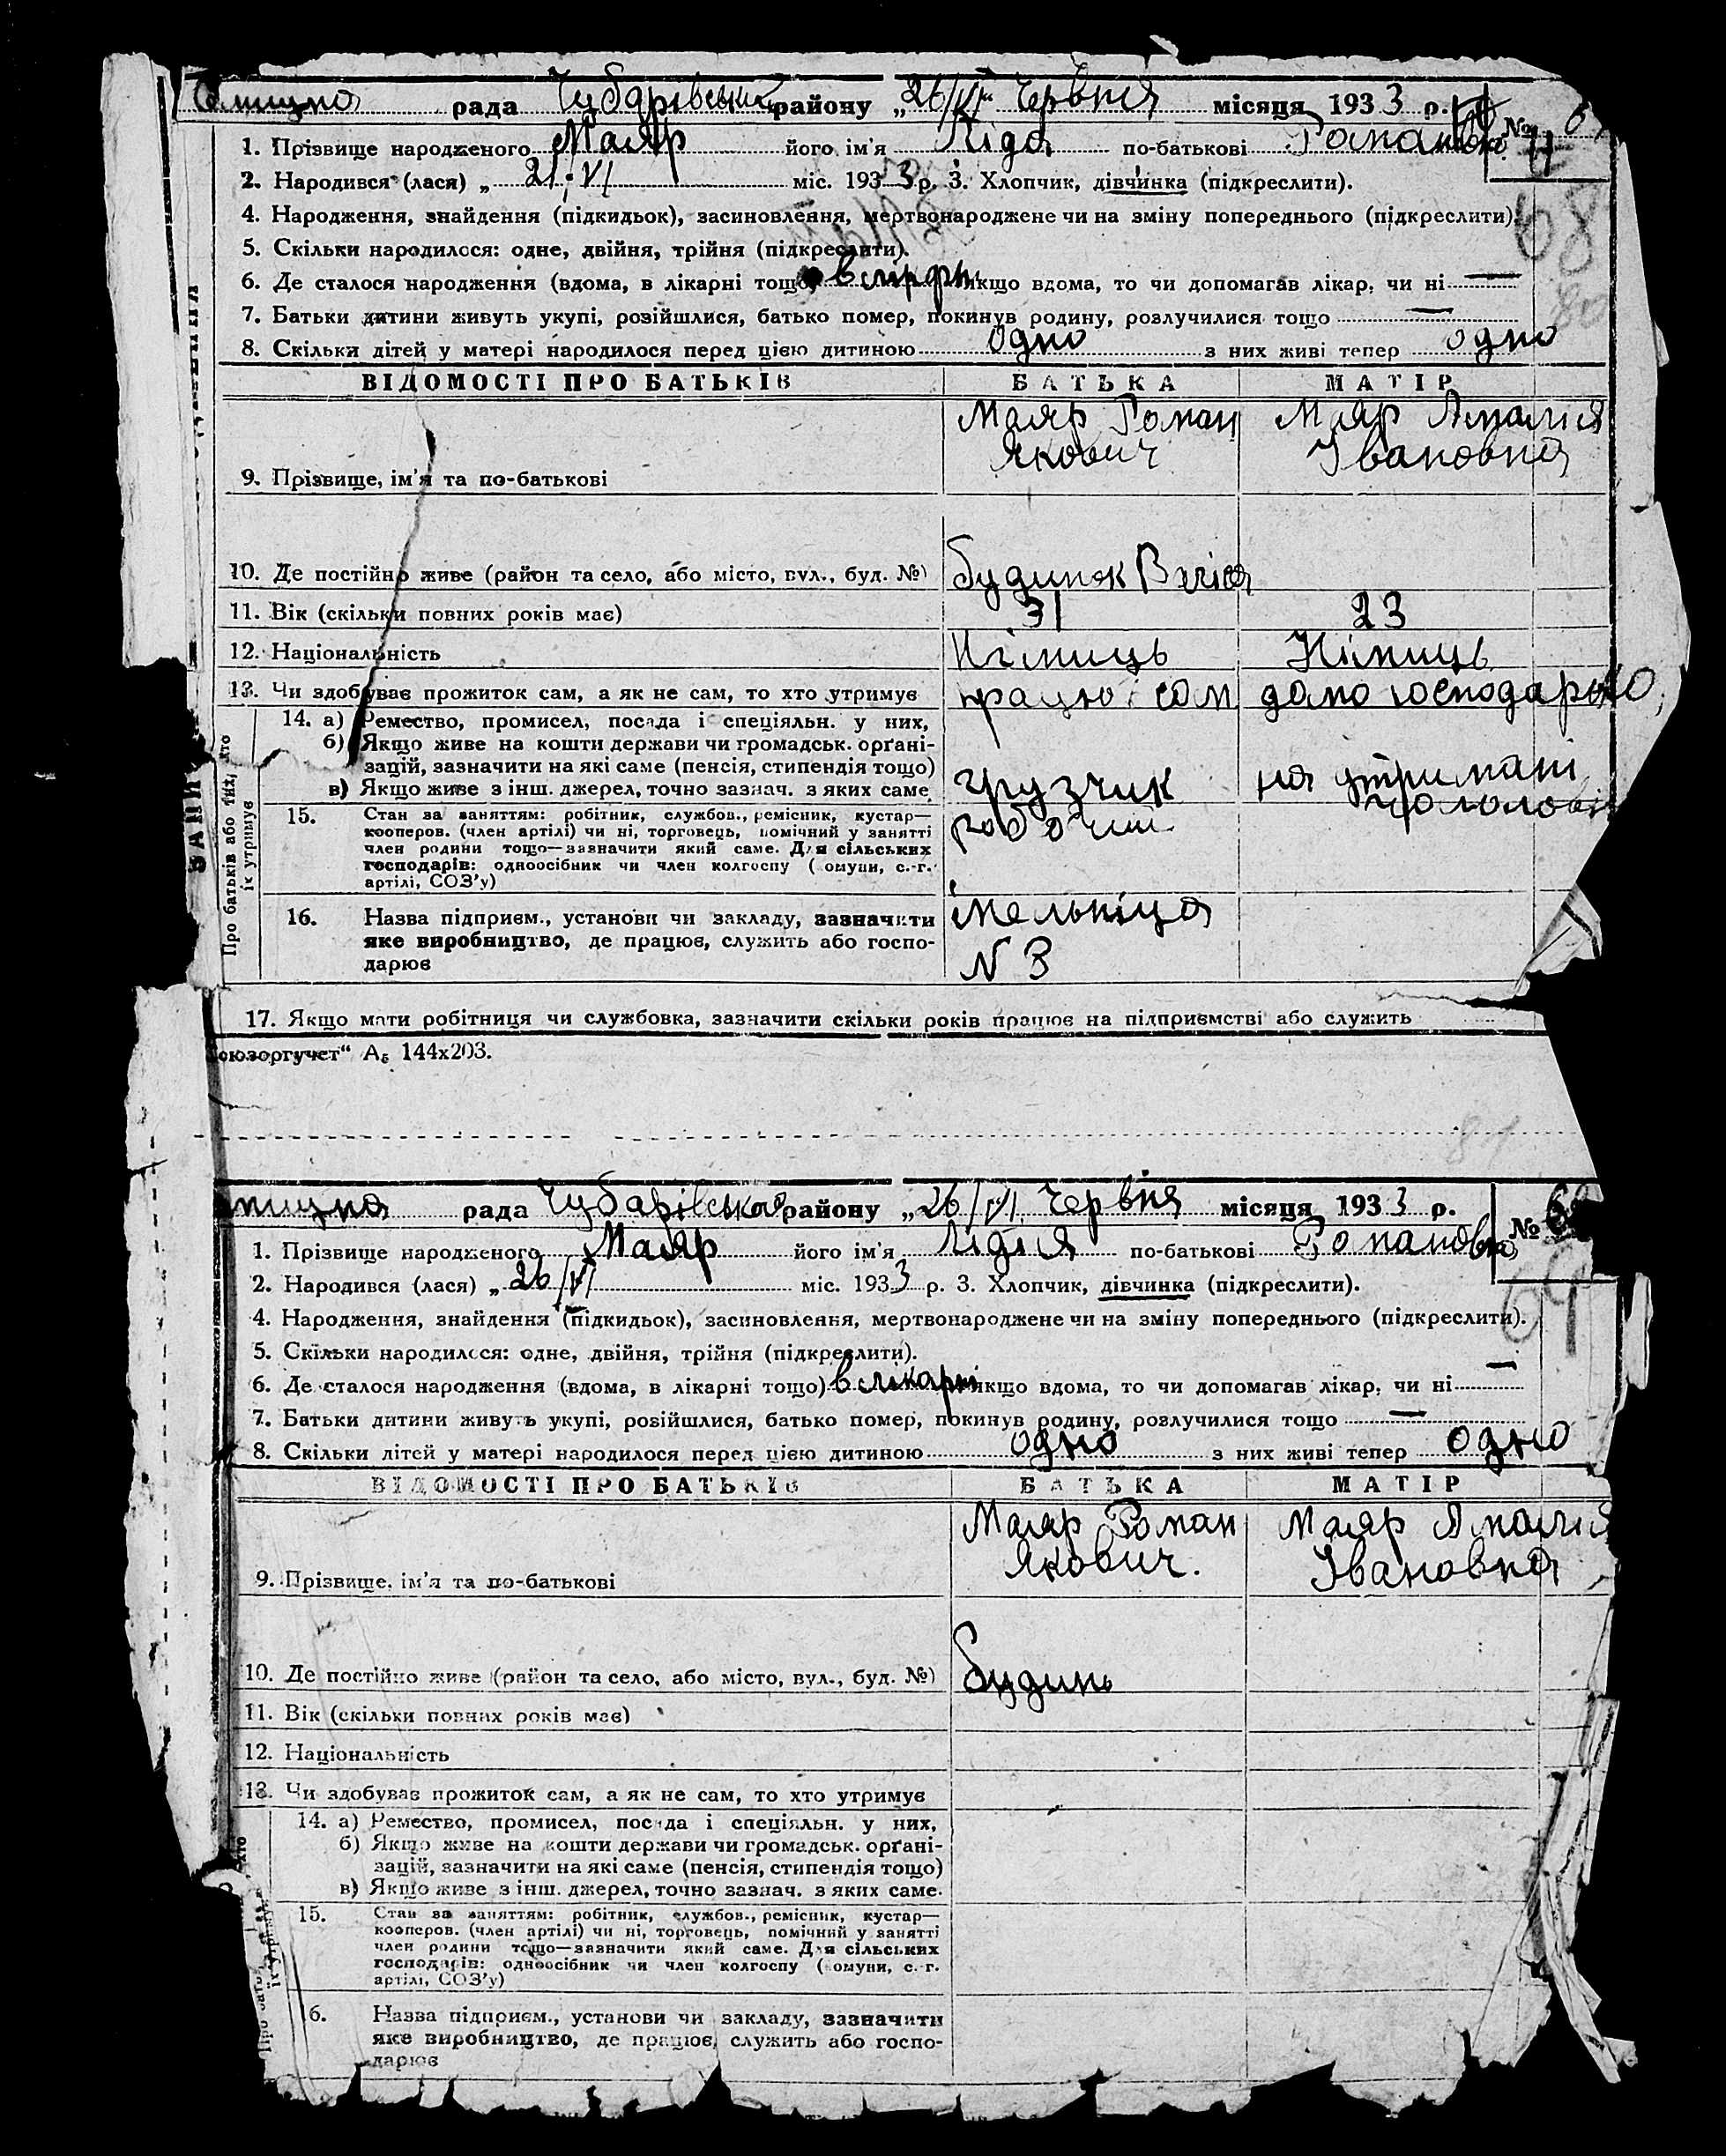 рада Чубарівський району „26/VI“ Червня місяця 1933 р.
№
1. Прізвище народженого Маяр його ім'я Ліда по-батькові Романовна
2. Народився (лася) „ 21/VI міс. 1933 р. 3. Хлопчик, дівчинка (підкреслити).
4. Народження, знайдення (підкидьок), засиновлення, мертвонароджене чи на зміну попереднього (підкреслити).
68
5. Скільки народилося: одне, двійня, трійня (підкреслити).
6. Де сталося народження (вдома, в лікарні тощо) в якщо вдома, то чи допомагав лікар, чи ні —
7. Батьки дитини живуть укупі, розійшлися, батько помер, покинув родину, розлучилися тощо —
8. Скільки дітей у матері народилося перед цією дитиною одно з них живі тепер одно
ВІДОМОСТІ ПРО БАТЬКІВ БАТЬКА МАТІР
Маяр Роман Маяр Амалия
Якович Івановна
9. Прізвище, ім'я та по-батькові
10. Де постійно живе (район та село, або місто, вул., буд. №) будинок
11. Вік (скільки повних років має) 31 23
12. Національність Німиць Німиць
13. Чи здобуває прожиток сам, а як не сам, то хто утримує працює сам домо господарька
14. а) Ремество, промисел, посада і спеціяльн. у них,
б) Якщо живе на кошти держави чи громадськ. орґані-
зацій, зазначити на які саме (пенсія, стипендія тощо)
в) Якщо живе з інш. джерел, точно зазнач. з яких саме. грузчик на утримані
Про батьків або тих, хто
їх утримує
15. Стан за заняттям: робітник, службов., ремісник, кустар—
кооперов. (член артілі) чи ні, торговець, помічний у занятті
член родини тощо—зазначити який саме. Для сільських
господарів: одноосібник чи член колгоспу (комуни, с.-г.
артілі, СОЗ'у)
робочий
16. Назва підприєм., установи чи закладу, зазначити
яке виробництво, де працює, служить або госпо-
дарює
Мельніца
N 3
17. Якщо мати робітниця чи службовка, зазначити скільки років працює на підприємстві або служить
оюзоргучет“ А5 144х203.
рада Чубарівська району „26/VI Червня місяця 1933 р.
№
1. Прізвище народженого Маяр його ім'я Лідія по-батькові Романовна
2. Народився (лася) „ 26/VI міс. 1933 р. 3. Хлопчик, дівчинка (підкреслити).
4. Народження, знайдення (підкидьок), засиновлення, мертвонароджене чи на зміну попереднього (підкреслити).
69
5. Скільки народилося: одне, двійня, трійня (підкреслити).
6. Де сталося народження (вдома, в лікарні тощо) в лікарні якщо вдома, то чи допомагав лікар, чи ні —
7. Батьки дитини живуть укупі, розійшлися, батько помер, покинув родину, розлучилися тощо —
8. Скільки дітей у матері народилося перед цією дитиною одно з них живі тепер одно
ВІДОМОСТІ ПРО БАТЬКІВ БАТЬКА МАТІР
Маяр Роман Маяр Амалия
Якович. Івановна
9. Прізвище, ім'я та по-батькові
10. Де постійно живе (район та село, або місто, вул., буд. №) будинь
11. Вік (скільки повних років має)
12. Національність
13. Чи здобуває прожиток сам, а як не сам, то хто утримує
14. а) Ремество, промисел, посада і спеціяльн. у них,
б) Якщо живе на кошти держави чи громадськ. орґані-
зацій, зазначити на які саме (пенсія, стипендія тощо)
в) Якщо живе з інш. джерел, точно зазнач. з яких саме.
15. Стан за заняттям: робітник, службов., ремісник, кустар—
кооперов. (член артілі) чи ні, торговець, помічний у занятті
член родини тощо—зазначити який саме. Для сільських
господарів: одноосібник чи член колгоспу (комуни, с.-г.
артілі, СОЗ'у)
16. Назва підприєм., установи чи закладу, зазначити
яке виробництво, де працює, служить або госпо-
дарює